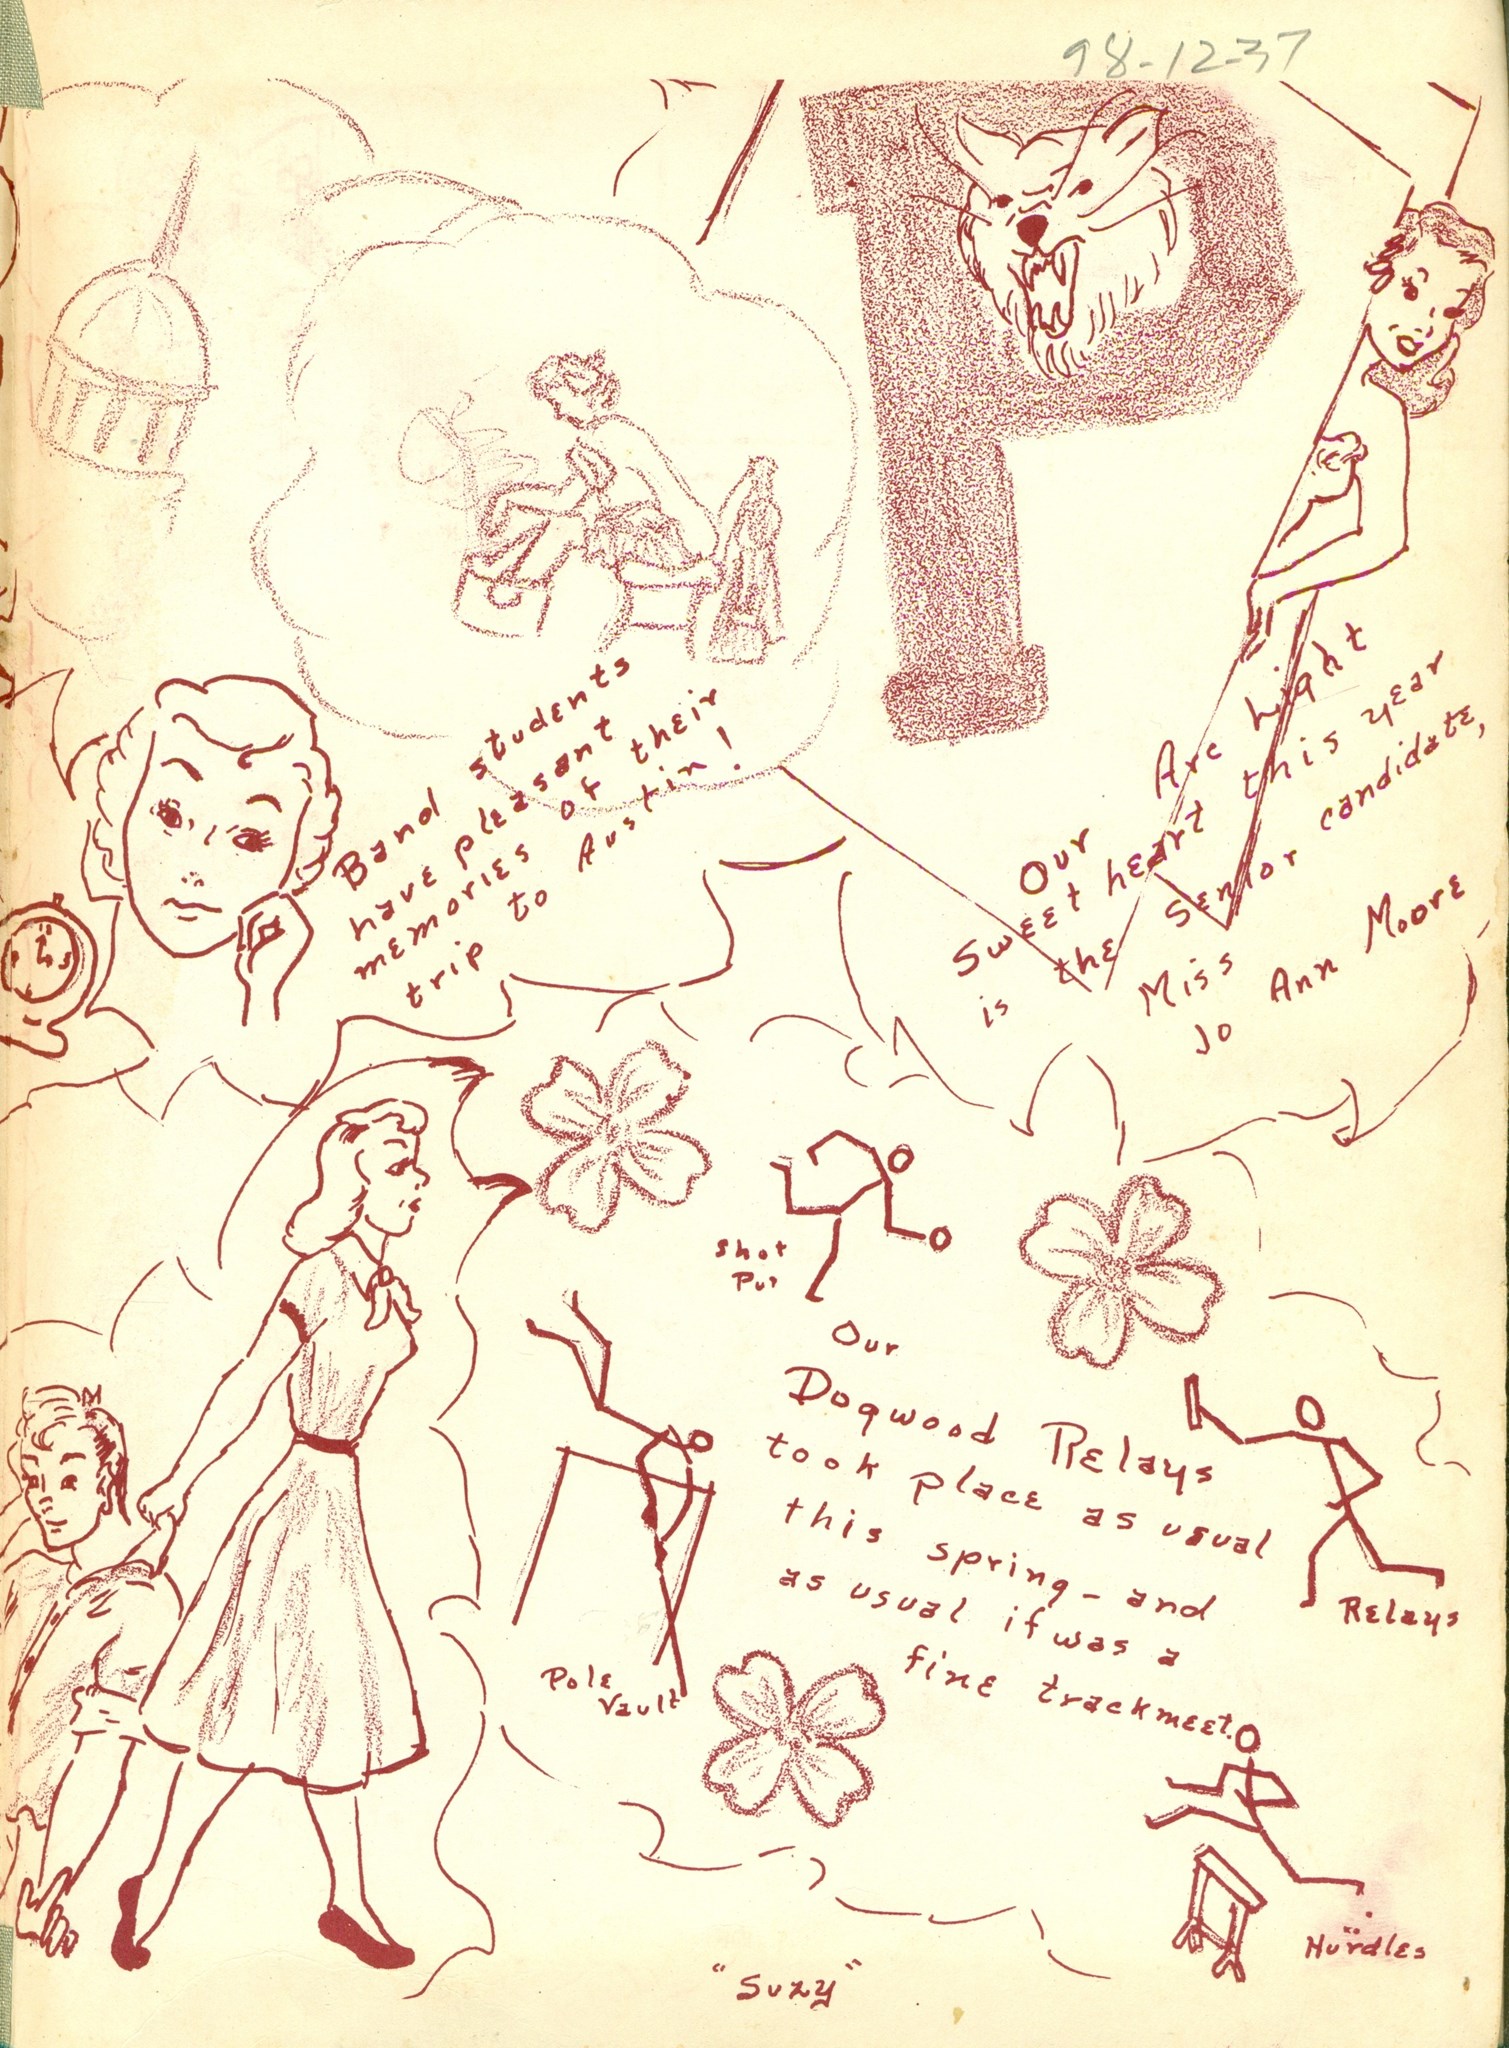 98-12-37
P
Band students
have pleasant
memories of their
trip to Austin!
Our
Sweet heart this year
is the Senior candidate,
Miss
Jo Ann Moore
Shot
Put
Our
Dogwood Relays
took place as usual
this spring - and
as usual it was a
fine trackmeet.
Relays
Pole
Vault
Hurdles
"Suzy"